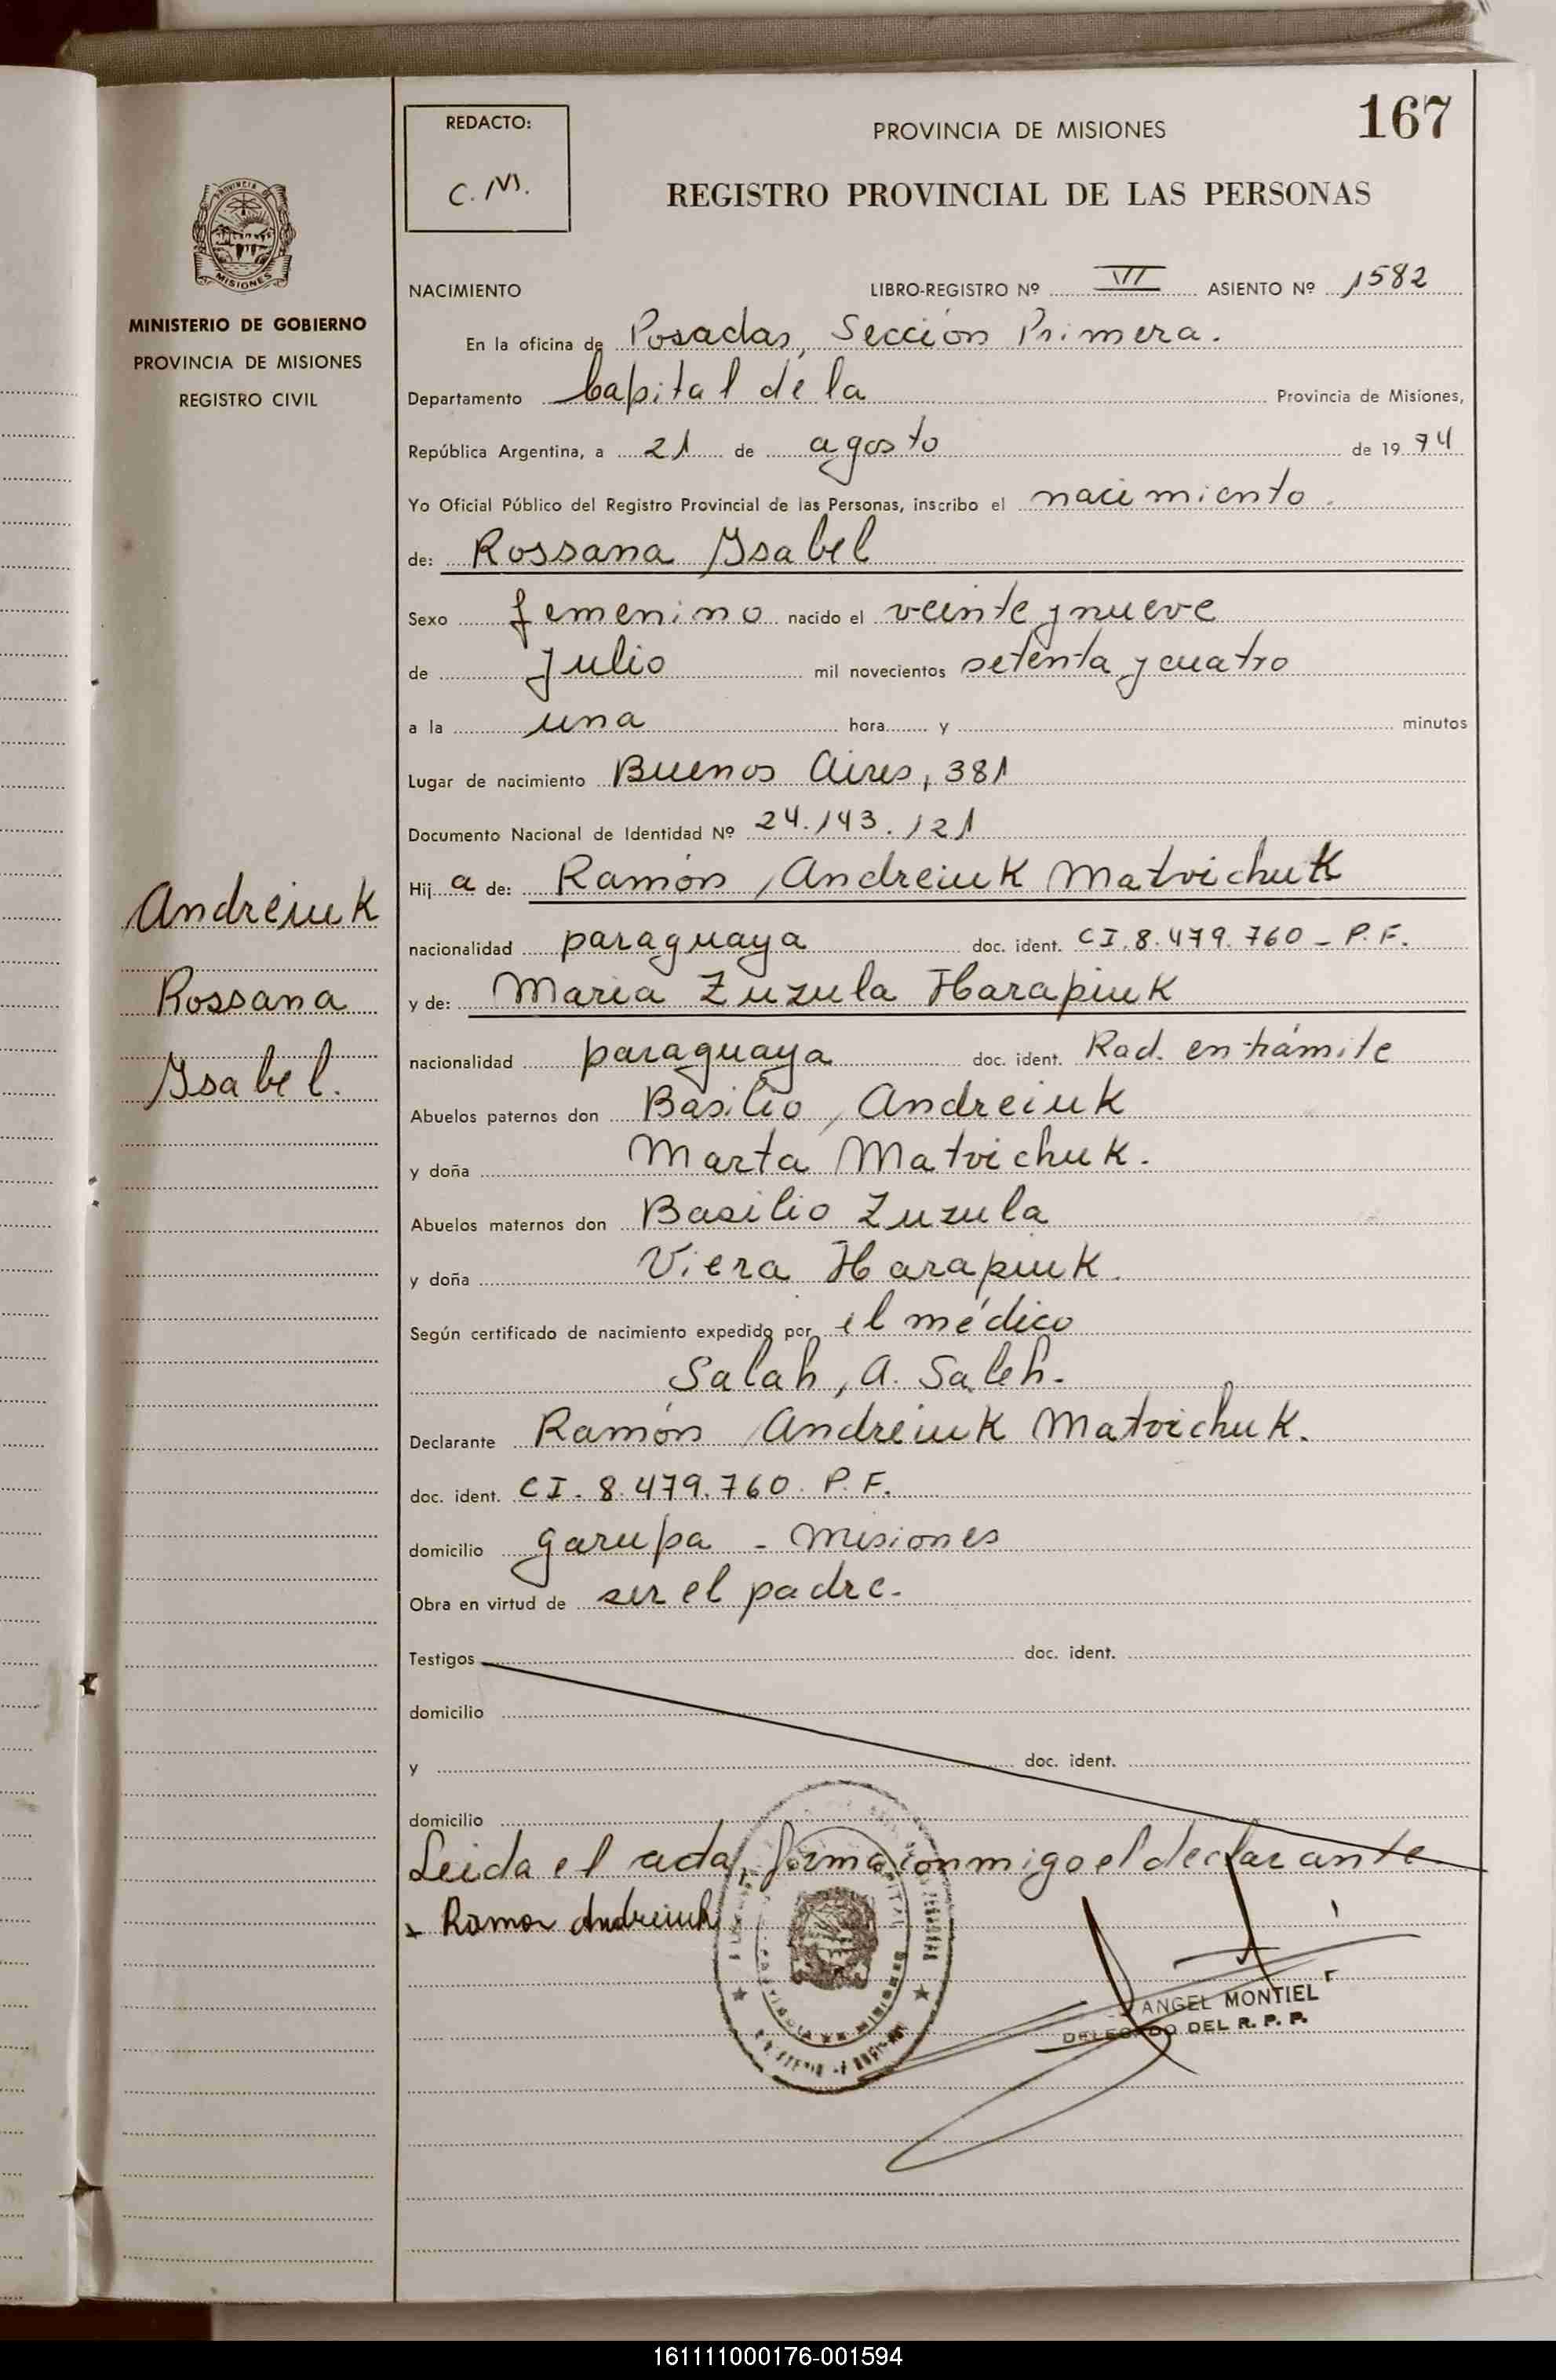 167
REDACTO:
C. M.
PROVINCIA DE MISIONES
REGISTRO PROVINCIAL DE LAS PERSONAS
MISIONES
MINISTERIO DE GOBIERNO
PROVINCIA DE MISIONES
REGISTRO CIVIL
Andreiuk
Rossana
Ysabel.
NACIMIENTO LIBRO-REGISTRO Nº VII ASIENTO Nº 1582
En la oficina de Posadas, Sección Primera.
Departamento Capital de la Provincia de Misiones,
República Argentina, a 21 de agosto de 1974
Yo Oficial Público del Registro Provincial de las Personas, inscribo el nacimiento.
de: Rossana Ysabel
Sexo femenino nacido el veinte y nueve
de Julio mil novecientos setenta y cuatro
a la una hora y minutos
Lugar de nacimiento Buenos Aires, 381
Documento Nacional de Identidad Nº 24.143.121
Hij a de: Ramón Andreiuk Matvichuk
nacionalidad paraguaya doc. ident. CI.8.479.760 - P.F.
y de: Maria Zuzula Harapiuk
nacionalidad paraguaya doc. ident. Rad. en trámite
Abuelos paternos don Basilio Andreiuk
y doña Marta Matvichuk.
Abuelos maternos don Basilio Zuzula
y doña Viera Harapiuk.
Según certificado de nacimiento expedido por el médico
Salah, A. Saleh.
Declarante Ramón Andreiuk Matvichuk.
doc. ident. CI. 8.479.760. P.F.
domicilio Garupa - Misiones
Obra en virtud de ser el padre.
Testigos doc. ident.
domicilio
y doc. ident.
domicilio
Leida el acta, firma conmigo el declarante
x Ramon Andreiuk
ANGEL MONTIEL
DELEGADO DEL R. P. P.
161111000176-001594